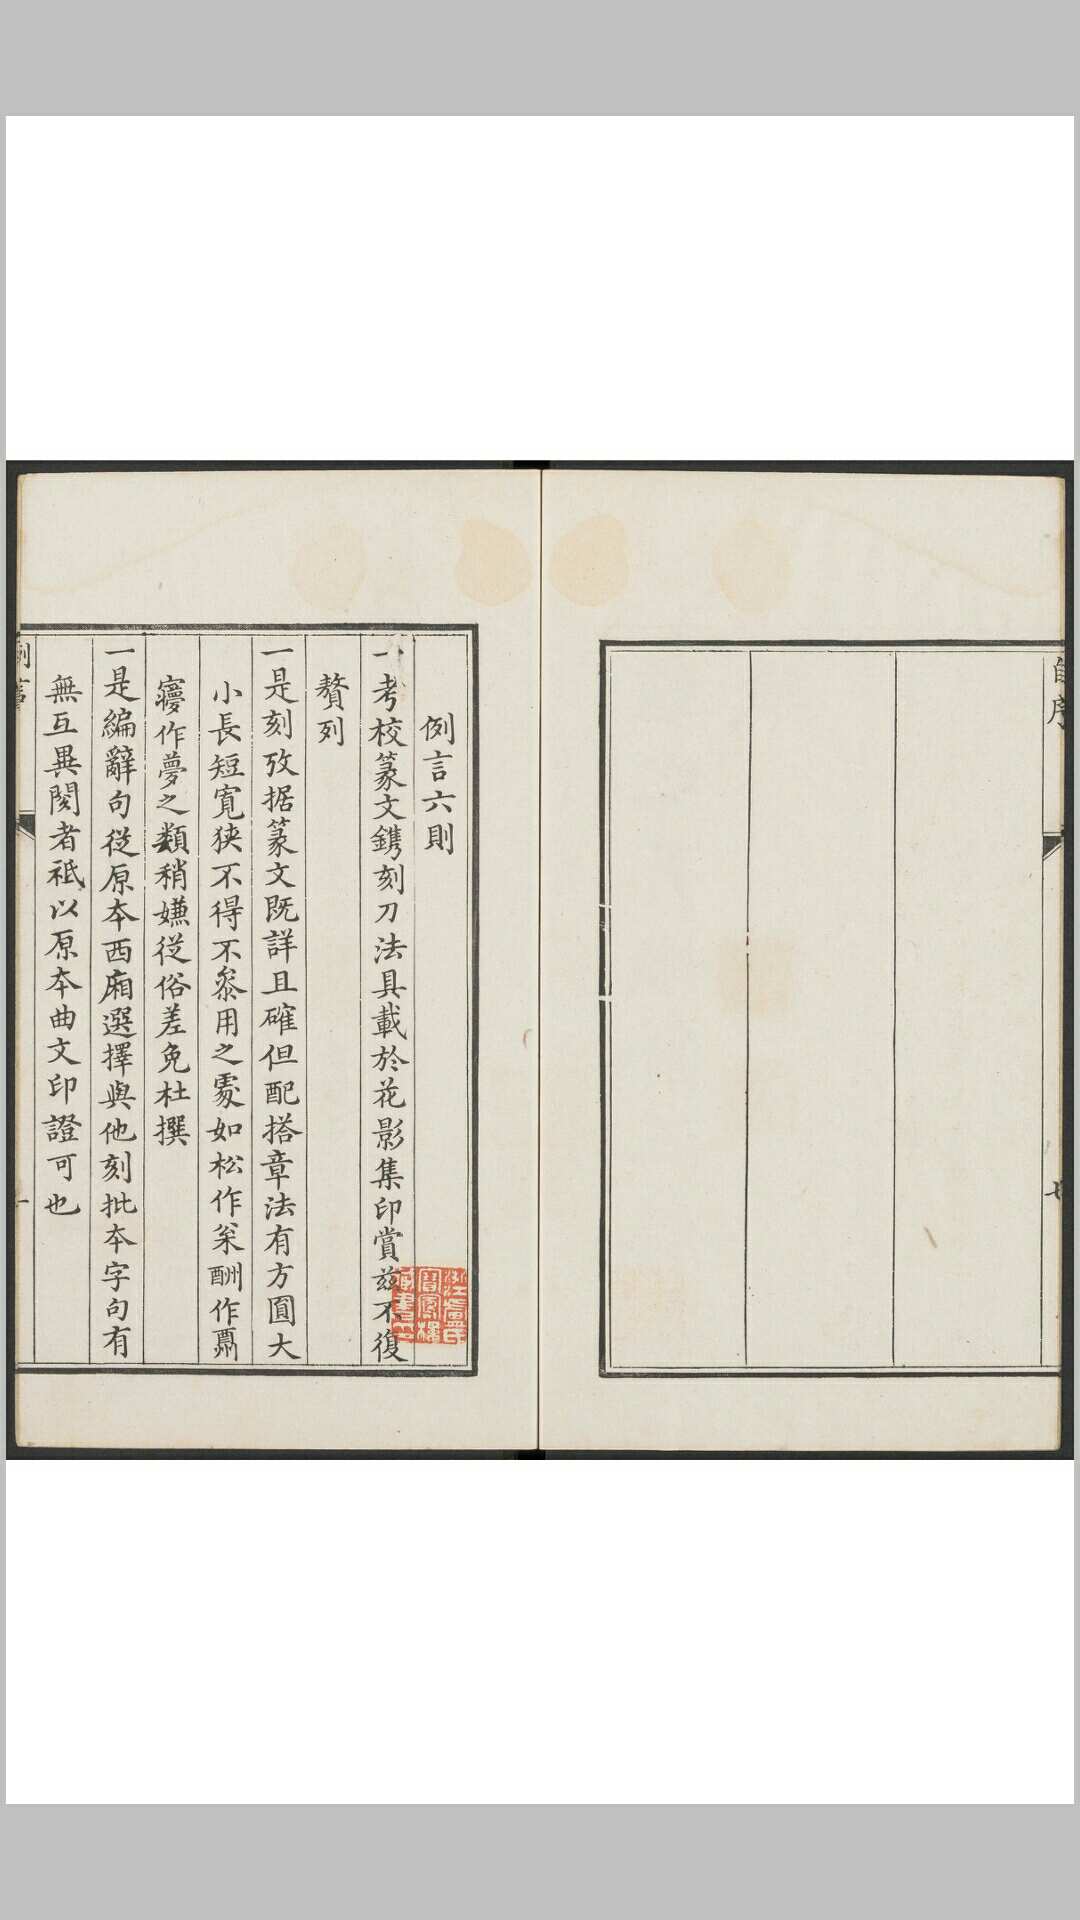 自序
例言六則
一考校篆文鐫刻刀法具載於花影集印賞茲不復
贅列
一是刻攷据篆文既詳且確但配搭章法有方圓大
小長短寬狹不得不叅用之處如松作枀酬作
㝱作夢之類稍嫌從俗差免杜撰
一是編辭句從原本西廂選擇與他刻批本字句有
無互異閱者祗以原本曲文印證可也
例言
一